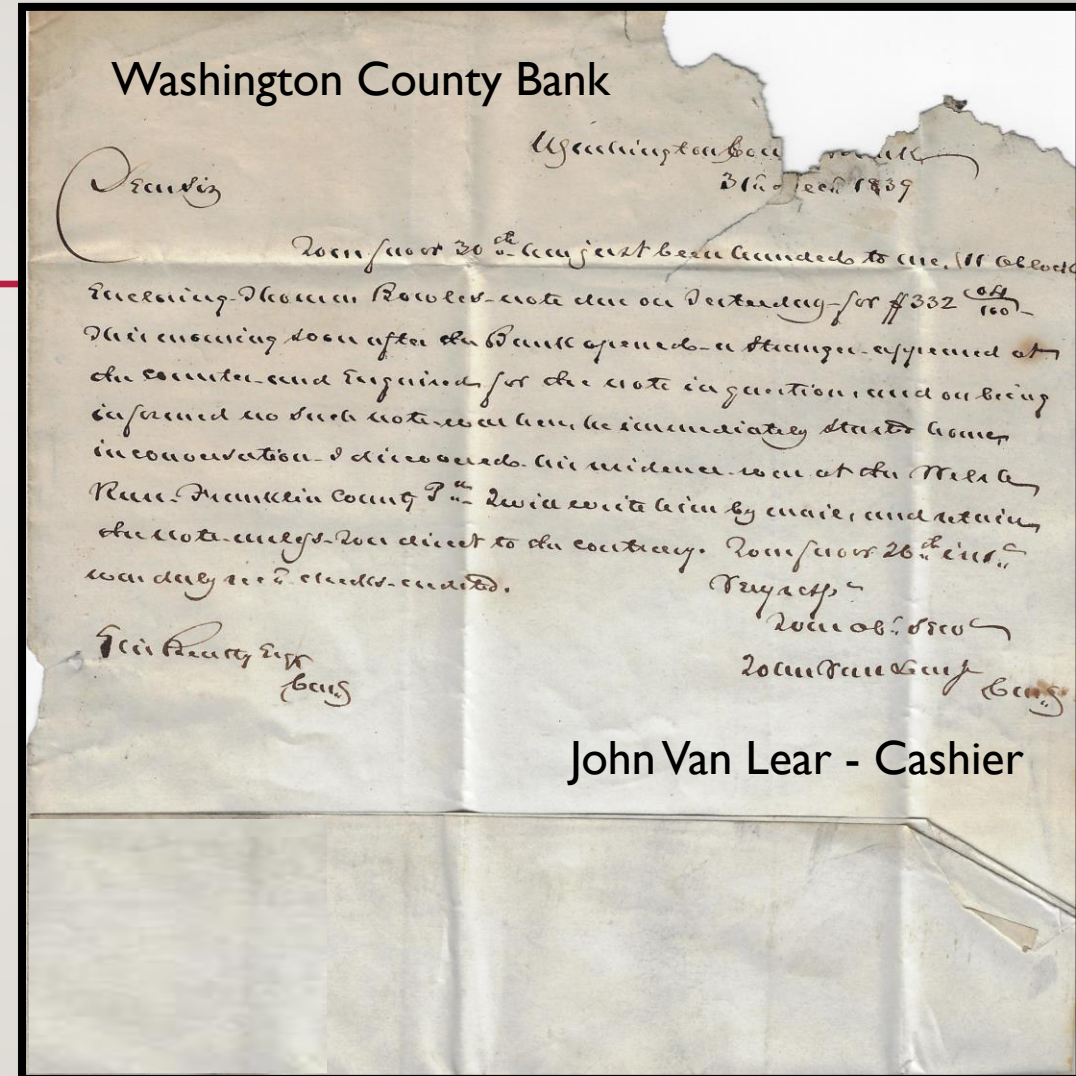 Washington County Bank
Washington Cou Bank
31st Decr 1839
Dear Sir
Your favor 30th has just been handed to me, (11 oClock
Enclosing Thomas Bowles note due on Yesterday for $332 04/100
This morning soon after the Bank opened a Stranger appeared at
the counter and Enquired for the note in question, and on being
informed no such note was here, he immediately Started home,
in conversation I discovered his residence was at the Welsh
Run Franklin County Pa. I will write him by mail, and retain
the note unless You direct to the contrary. Your favor 26th inst.
was duly recd. checks credited.
Very resp
Your obt. Servt
John Van Lear Jr
Cash
Esqr
Cash
John Van Lear - Cashier